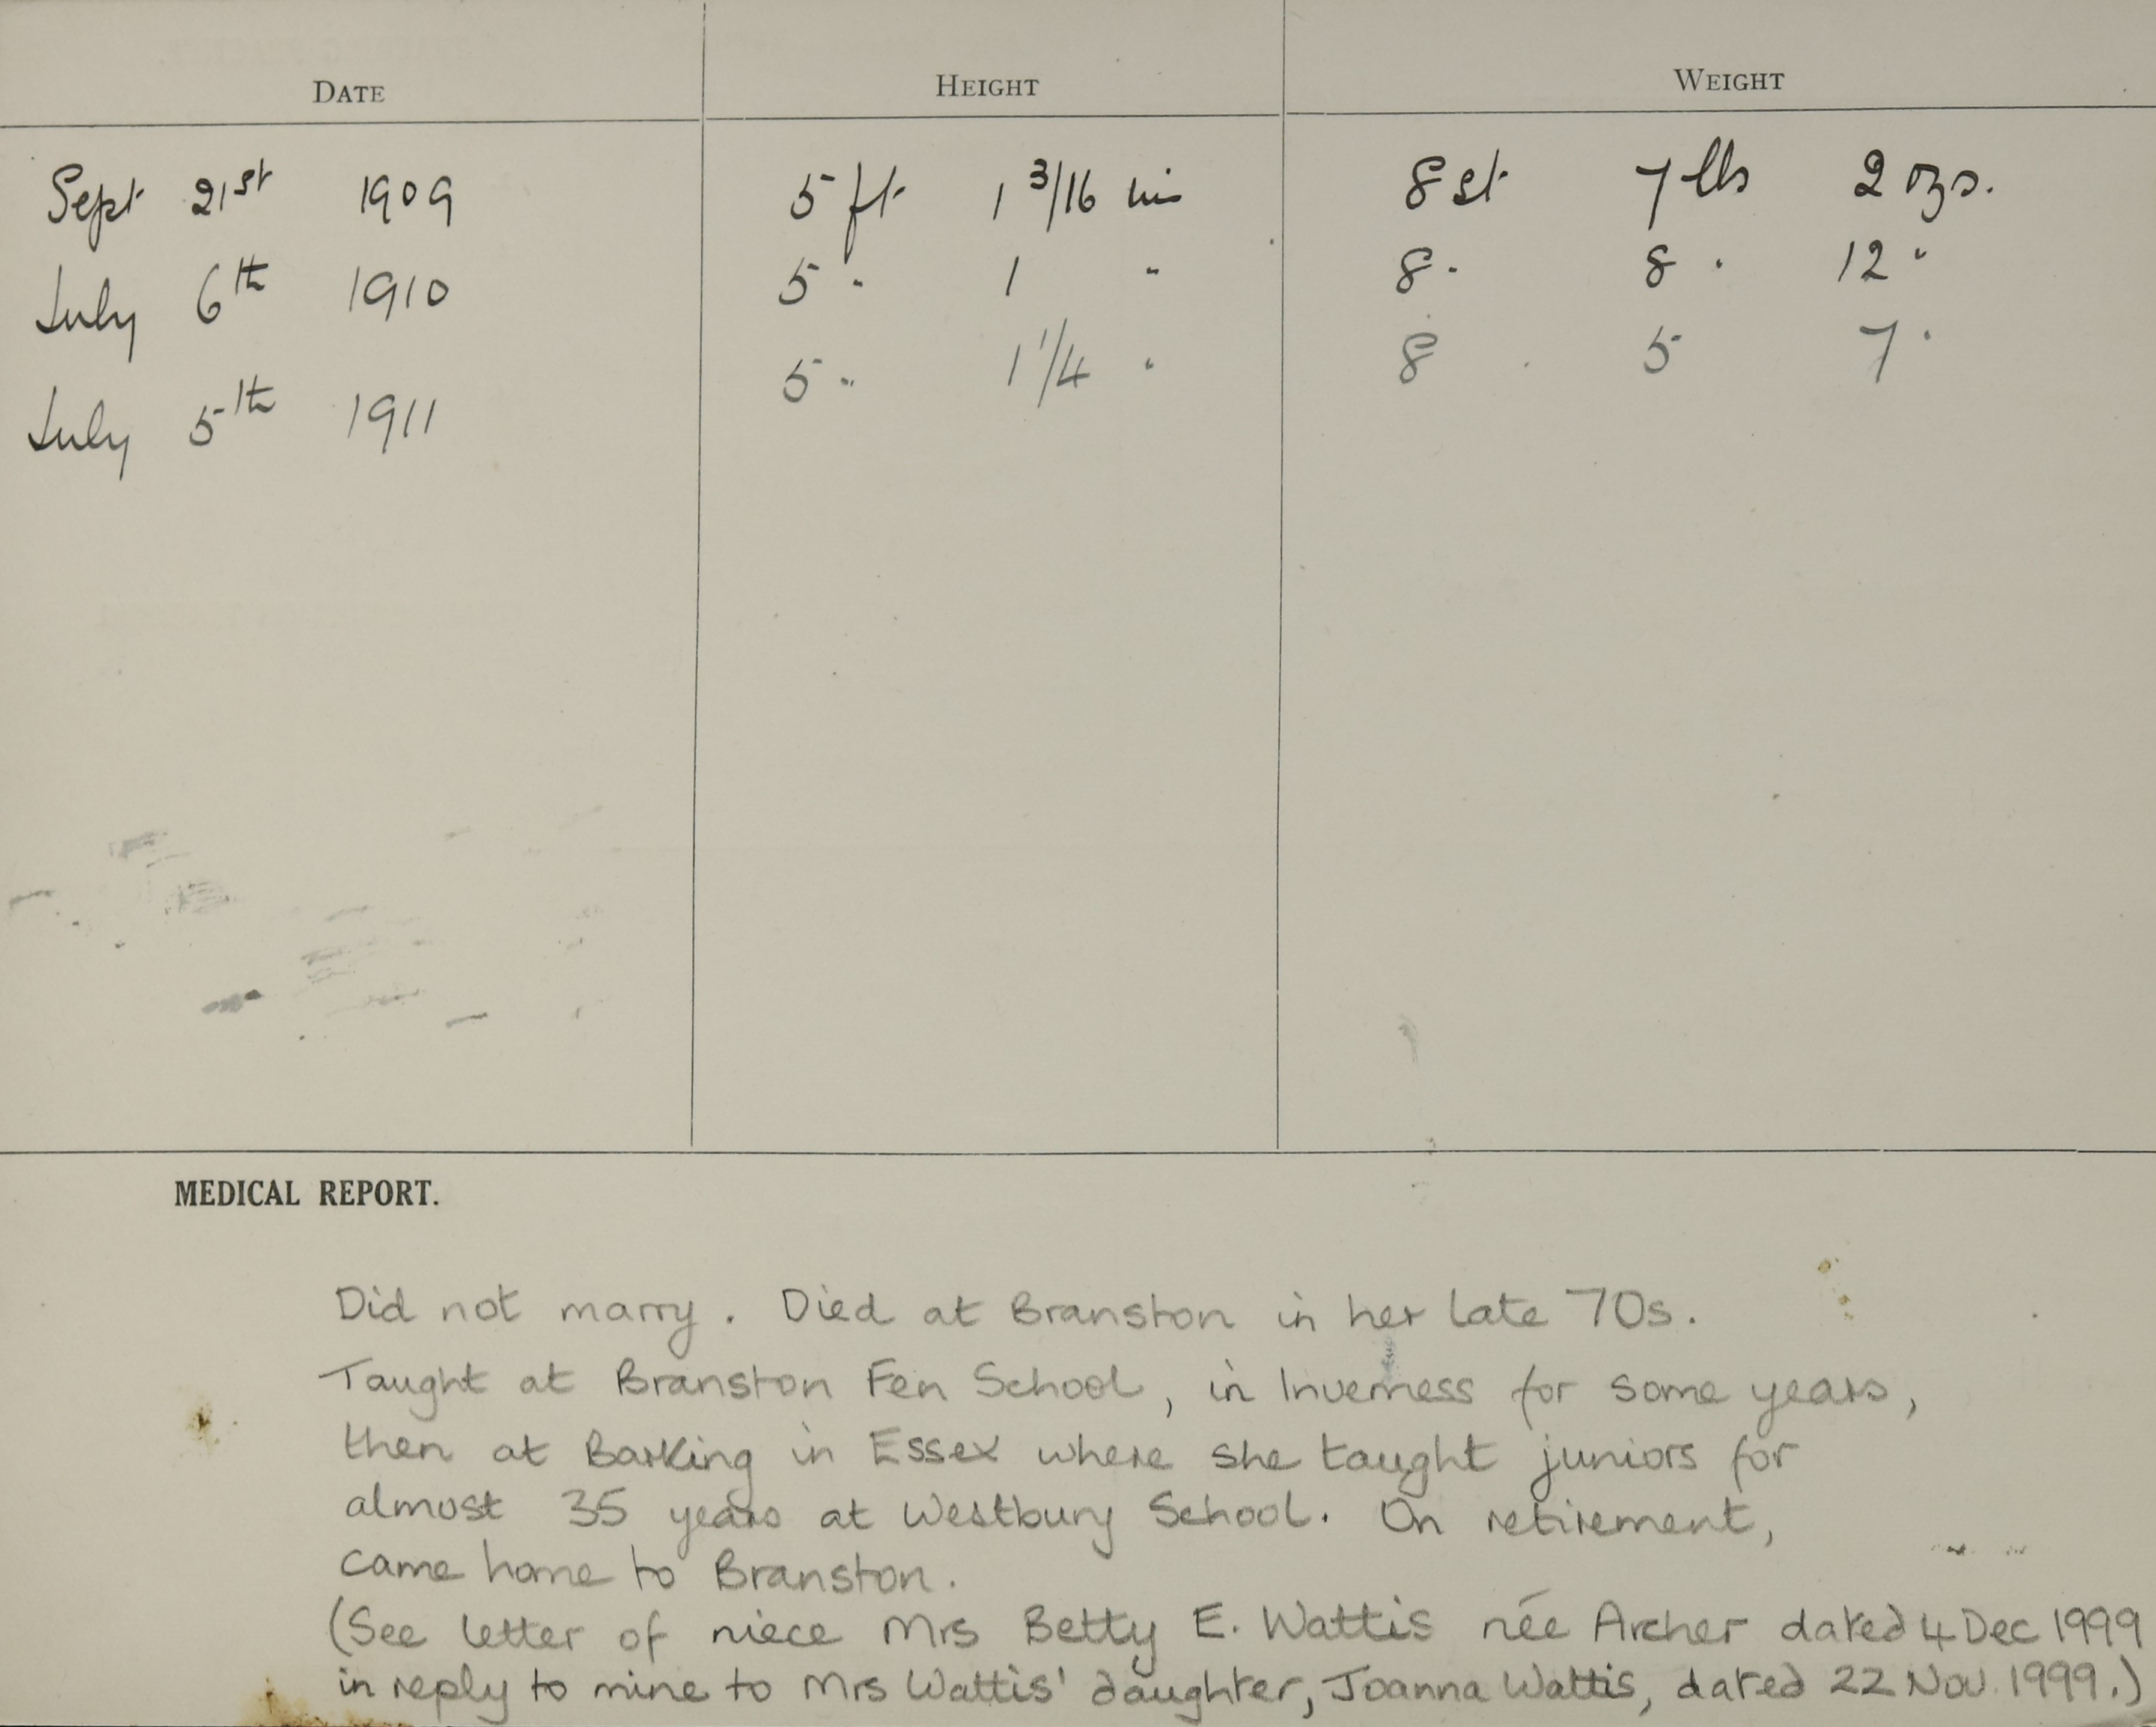 DATE HEIGHT WEIGHT
Sept 21st 1909 5 ft 1 3/16 in 8 st 7 lbs 2 ozs.
July 6th 1910 5 " 1 " 8 " 8 " 12 "
July 5th 1911 5 " 1 1/4 " 8 " 5 7 "
MEDICAL REPORT.
Did not marry. Died at Branston in her late 70s.
Taught at Branston Fen School, in Inverness for some years,
then at Barking in Essex where she taught juniors for
almost 35 years at Westbury School. On retirement,
came home to Branston.
(See letter of niece Mrs Betty E. Wattis née Archer dated 4 Dec 1999
in reply to mine to Mrs Wattis' daughter, Joanna Wattis, dated 22 Nov 1999.)